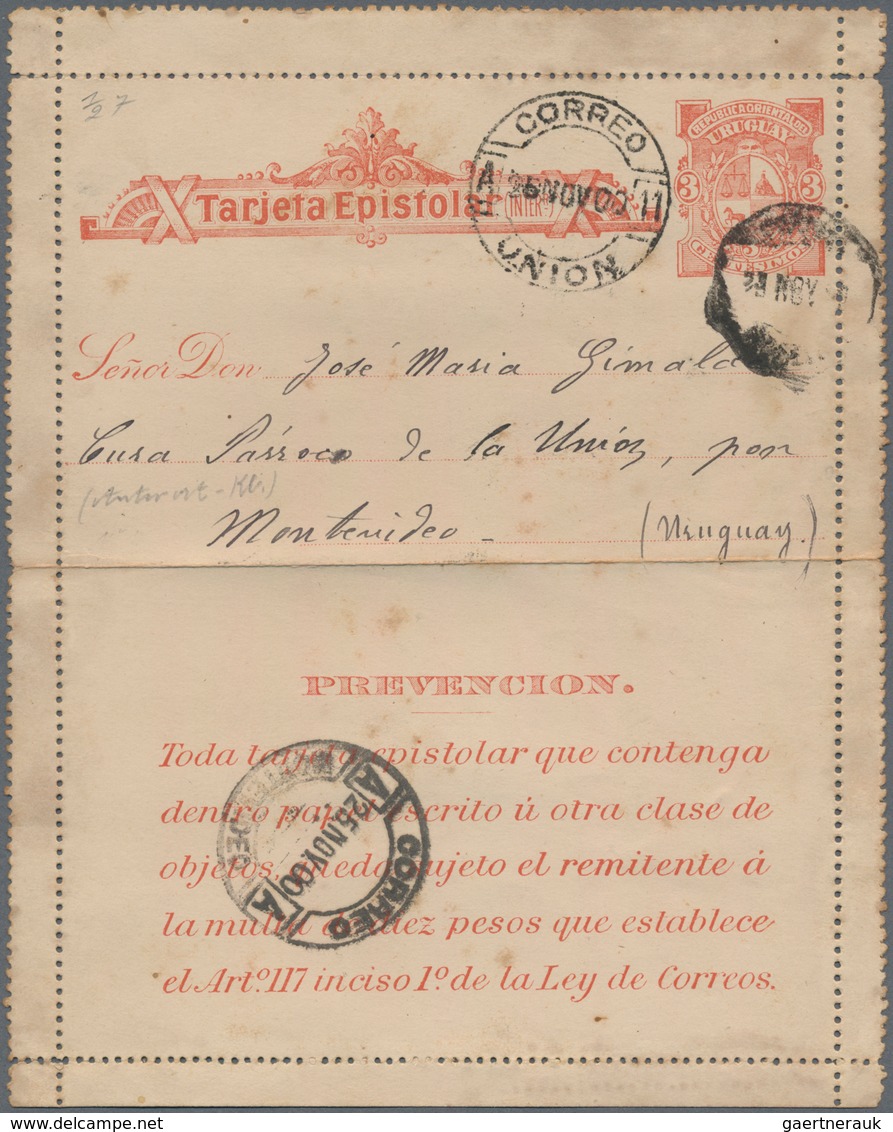 ½ 7
REPÚBLICA ORIENTAL DEL
URUGUAY
3 3
CENTESIMOS
CORREO
A 25 NOV 00 11
UNION
Tarjeta Epistolar
(INTER.)
23 NOV
Señor Don José Maria Gimald
Cura Párroco de la Unión, por
Montevideo - (Uruguay.)
PREVENCION.
Toda tarjeta epistolar que contenga
dentro papel escrito ú otra clase de
objetos, queda sujeto el remitente á
la multa de diez pesos que establece
el Artº. 117 inciso 1º. de la Ley de Correos.
CORREO
A 25 NOV. 00 A
gaertnerauk @ delcampe.net